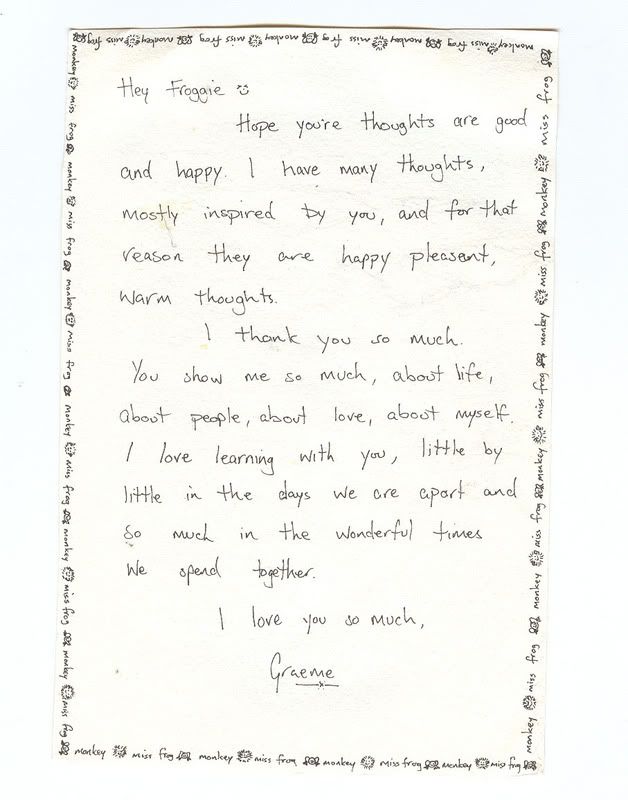 frog monkey miss frog monkey miss frog monkey miss frog monkey miss frog monkey
Hey Froggie
Hope you're thoughts are good
and happy. I have many thoughts,
mostly inspired by you, and for that
reason they are happy pleasent,
warm thoughts.
I thank you so much.
You show me so much, about life,
about people, about love, about myself.
I love learning with you, little by
little in the days we are apart and
so much in the wonderful times
we spend together.
I love you so much,
Graeme
monkey miss frog monkey miss frog monkey miss frog monkey miss frog monkey miss frog monkey miss frog
monkey miss frog monkey miss frog monkey miss frog monkey miss frog monkey miss frog
monkey miss frog monkey miss frog monkey miss frog monkey miss frog